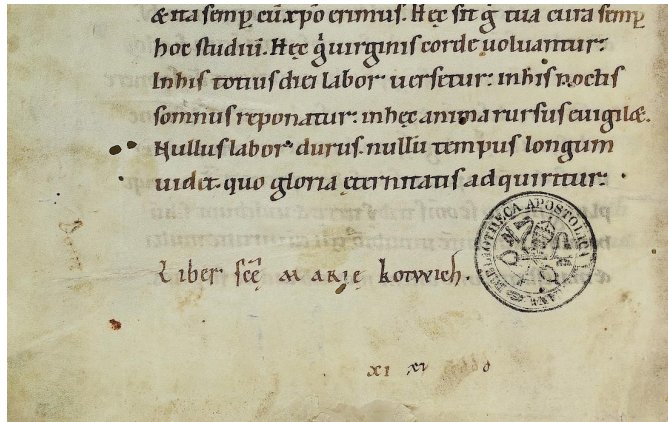 &ita semp̱ cū xp̄o erimus. Hęc sit ġ tua cura semp̱
hoc studiū. Hęc ġ uirginis corde uoluantur:
Inhis totius diei labor uersetur: inhis noctis
somnus reponatur: inhęc anima rursus euigilæ.
Nullus labor durus. nullū tempus longum
uidet᷑. quo gloria ęternitatis adquiritur:
Liber scę̄ MARIE kotwich.
BIBLIOTHECA APOSTOLICA VATICANA
XI XV